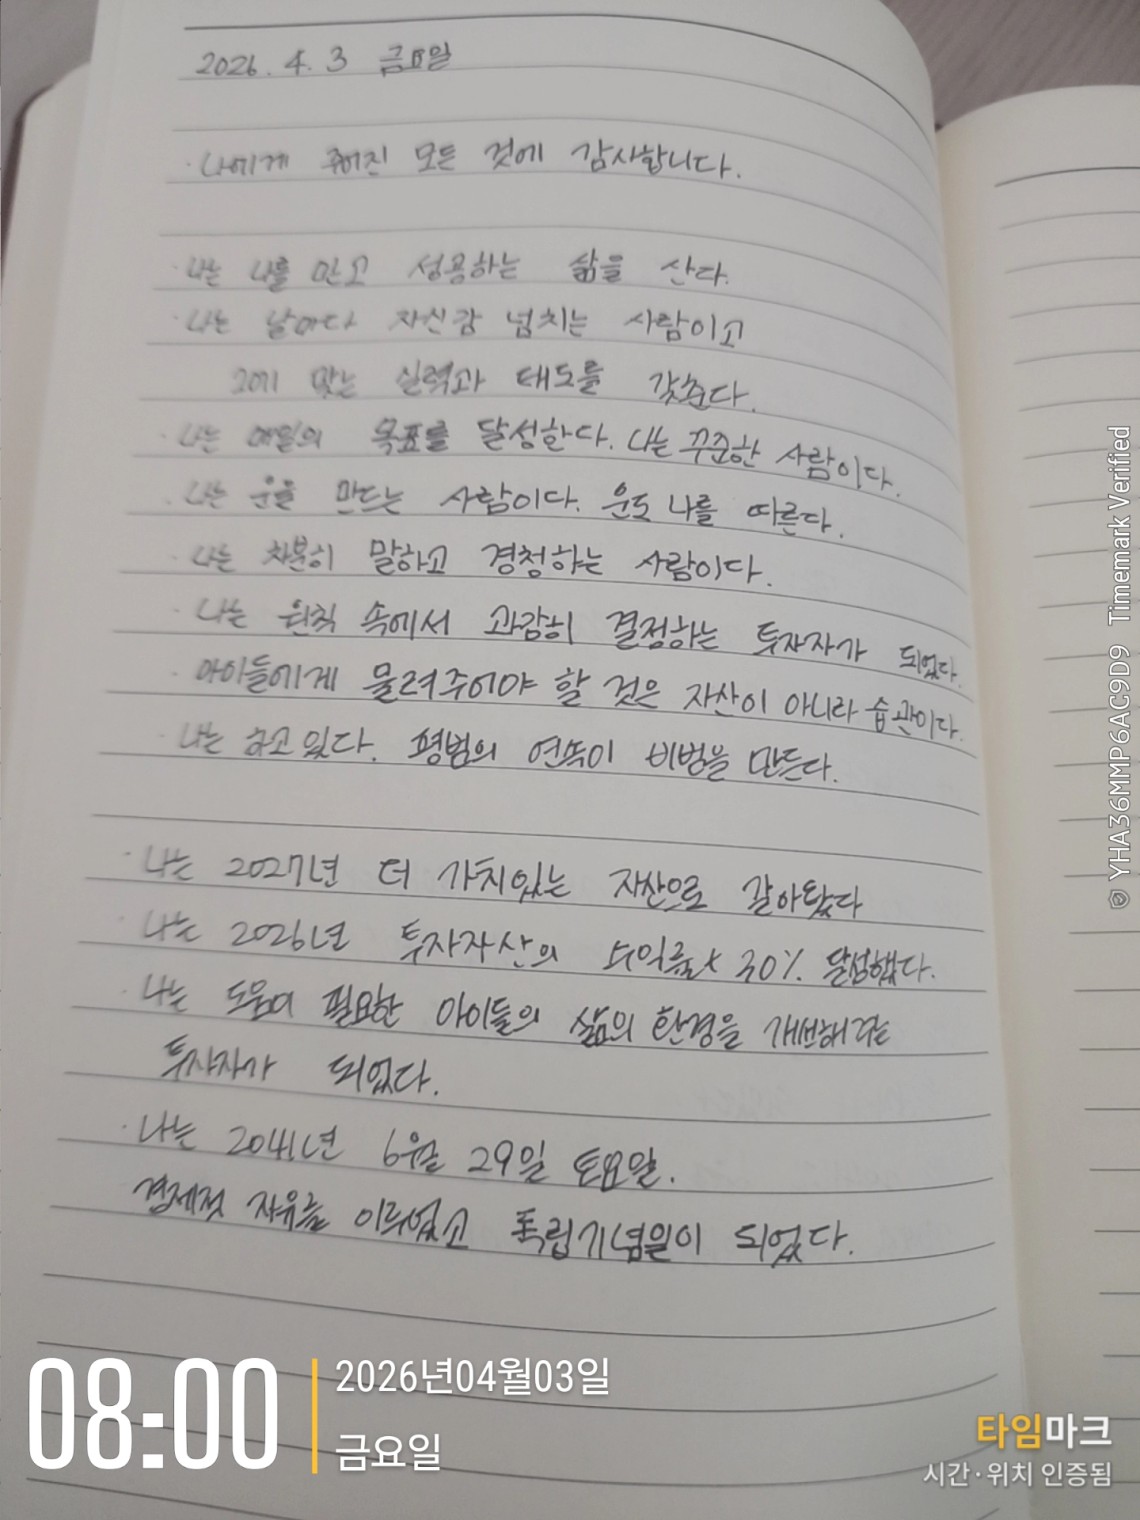 2026. 4. 3 금요일
· 나에게 주어진 모든 것에 감사합니다.
· 나는 나를 믿고 성공하는 삶을 산다.
· 나는 날마다 자신감 넘치는 사람이고
그에 맞는 실력과 태도를 갖춘다.
· 나는 매일의 목표를 달성한다. 나는 꾸준한 사람이다.
· 나는 운을 만드는 사람이다. 운도 나를 따른다.
· 나는 차분히 말하고 경청하는 사람이다.
· 나는 원칙 속에서 과감히 결정하는 투자자가 되었다.
· 아이들에게 물려주어야 할 것은 자산이 아니라 습관이다.
· 나는 하고 있다. 평범의 연속이 비범을 만든다.
· 나는 2027년 더 가치있는 자산으로 갈아탔다
· 나는 2026년 투자자산의 수익률 30% 달성했다.
· 나는 도움이 필요한 아이들의 삶의 환경을 개선해주는
투자자가 되었다.
· 나는 2041년 6월 29일 토요일.
경제적 자유를 이루었고 독립기념일이 되었다.
08:00
2026년04월03일
금요일
타임마크
시간·위치 인증됨
YHA36MMP6AC9D9 Timemark Verified